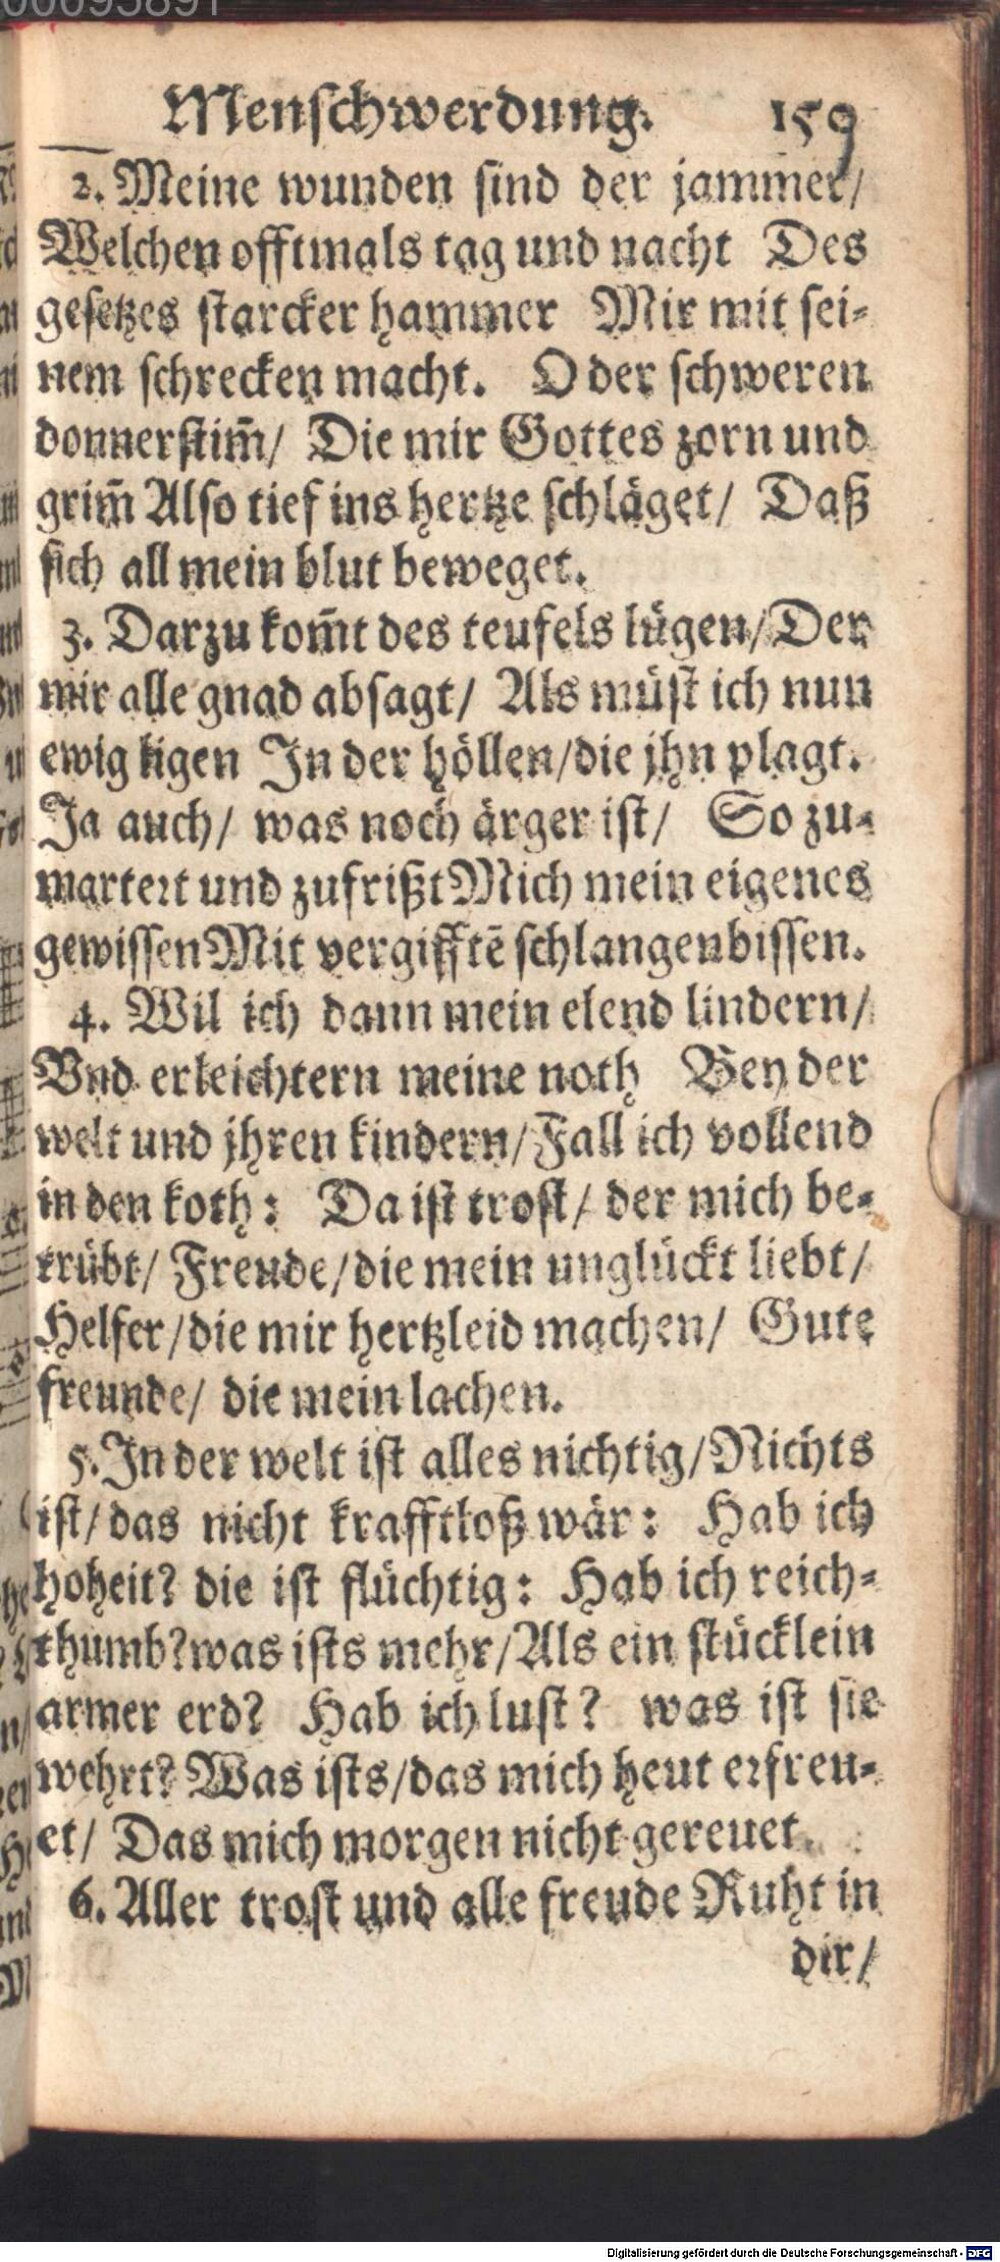 00095891
Menschwerdung. 159
2. Meine wunden sind der jammer/
Welchen offtmals tag und nacht Des
gesetzes starcker hammer Mir mit sei-
nem schrecken macht. O der schweren
donnerstim̃/ Die mir Gottes zorn und
grim̃ Also tief ins hertze schläget/ Daß
sich all mein blut beweget.
3. Darzu kom̃t des teufels lügen/ Der
mir alle gnad absagt/ Als müst ich nun
ewig ligen In der höllen/die jhn plagt.
Ja auch/ was noch ärger ist/ So zu-
martert und zufrißt Mich mein eigenes
gewissen Mit vergifftē schlangenbissen.
4. Wil ich dann mein elend lindern/
Vnd erleichtern meine noth Bey der
welt und jhren kindern/Fall ich vollend
in den koth: Da ist trost/ der mich be-
trübt/ Freude/die mein unglückt liebt/
Helfer/die mir hertzleid machen/ Gute
freunde/ die mein lachen.
5. In der welt ist alles nichtig/Nichts
ist/das nicht krafftloß wär: Hab ich
hoheit? die ist flüchtig: Hab ich reich-
thumb? was ists mehr/Als ein stücklein
armer erd? Hab ich lust? was ist sie
wehrt? Was ists/das mich heut erfreu-
et/ Das mich morgen nicht gereuet.
6. Aller trost und alle freude Ruht in
dir/
Digitalisierung gefördert durch die Deutsche Forschungsgemeinschaft - DFG